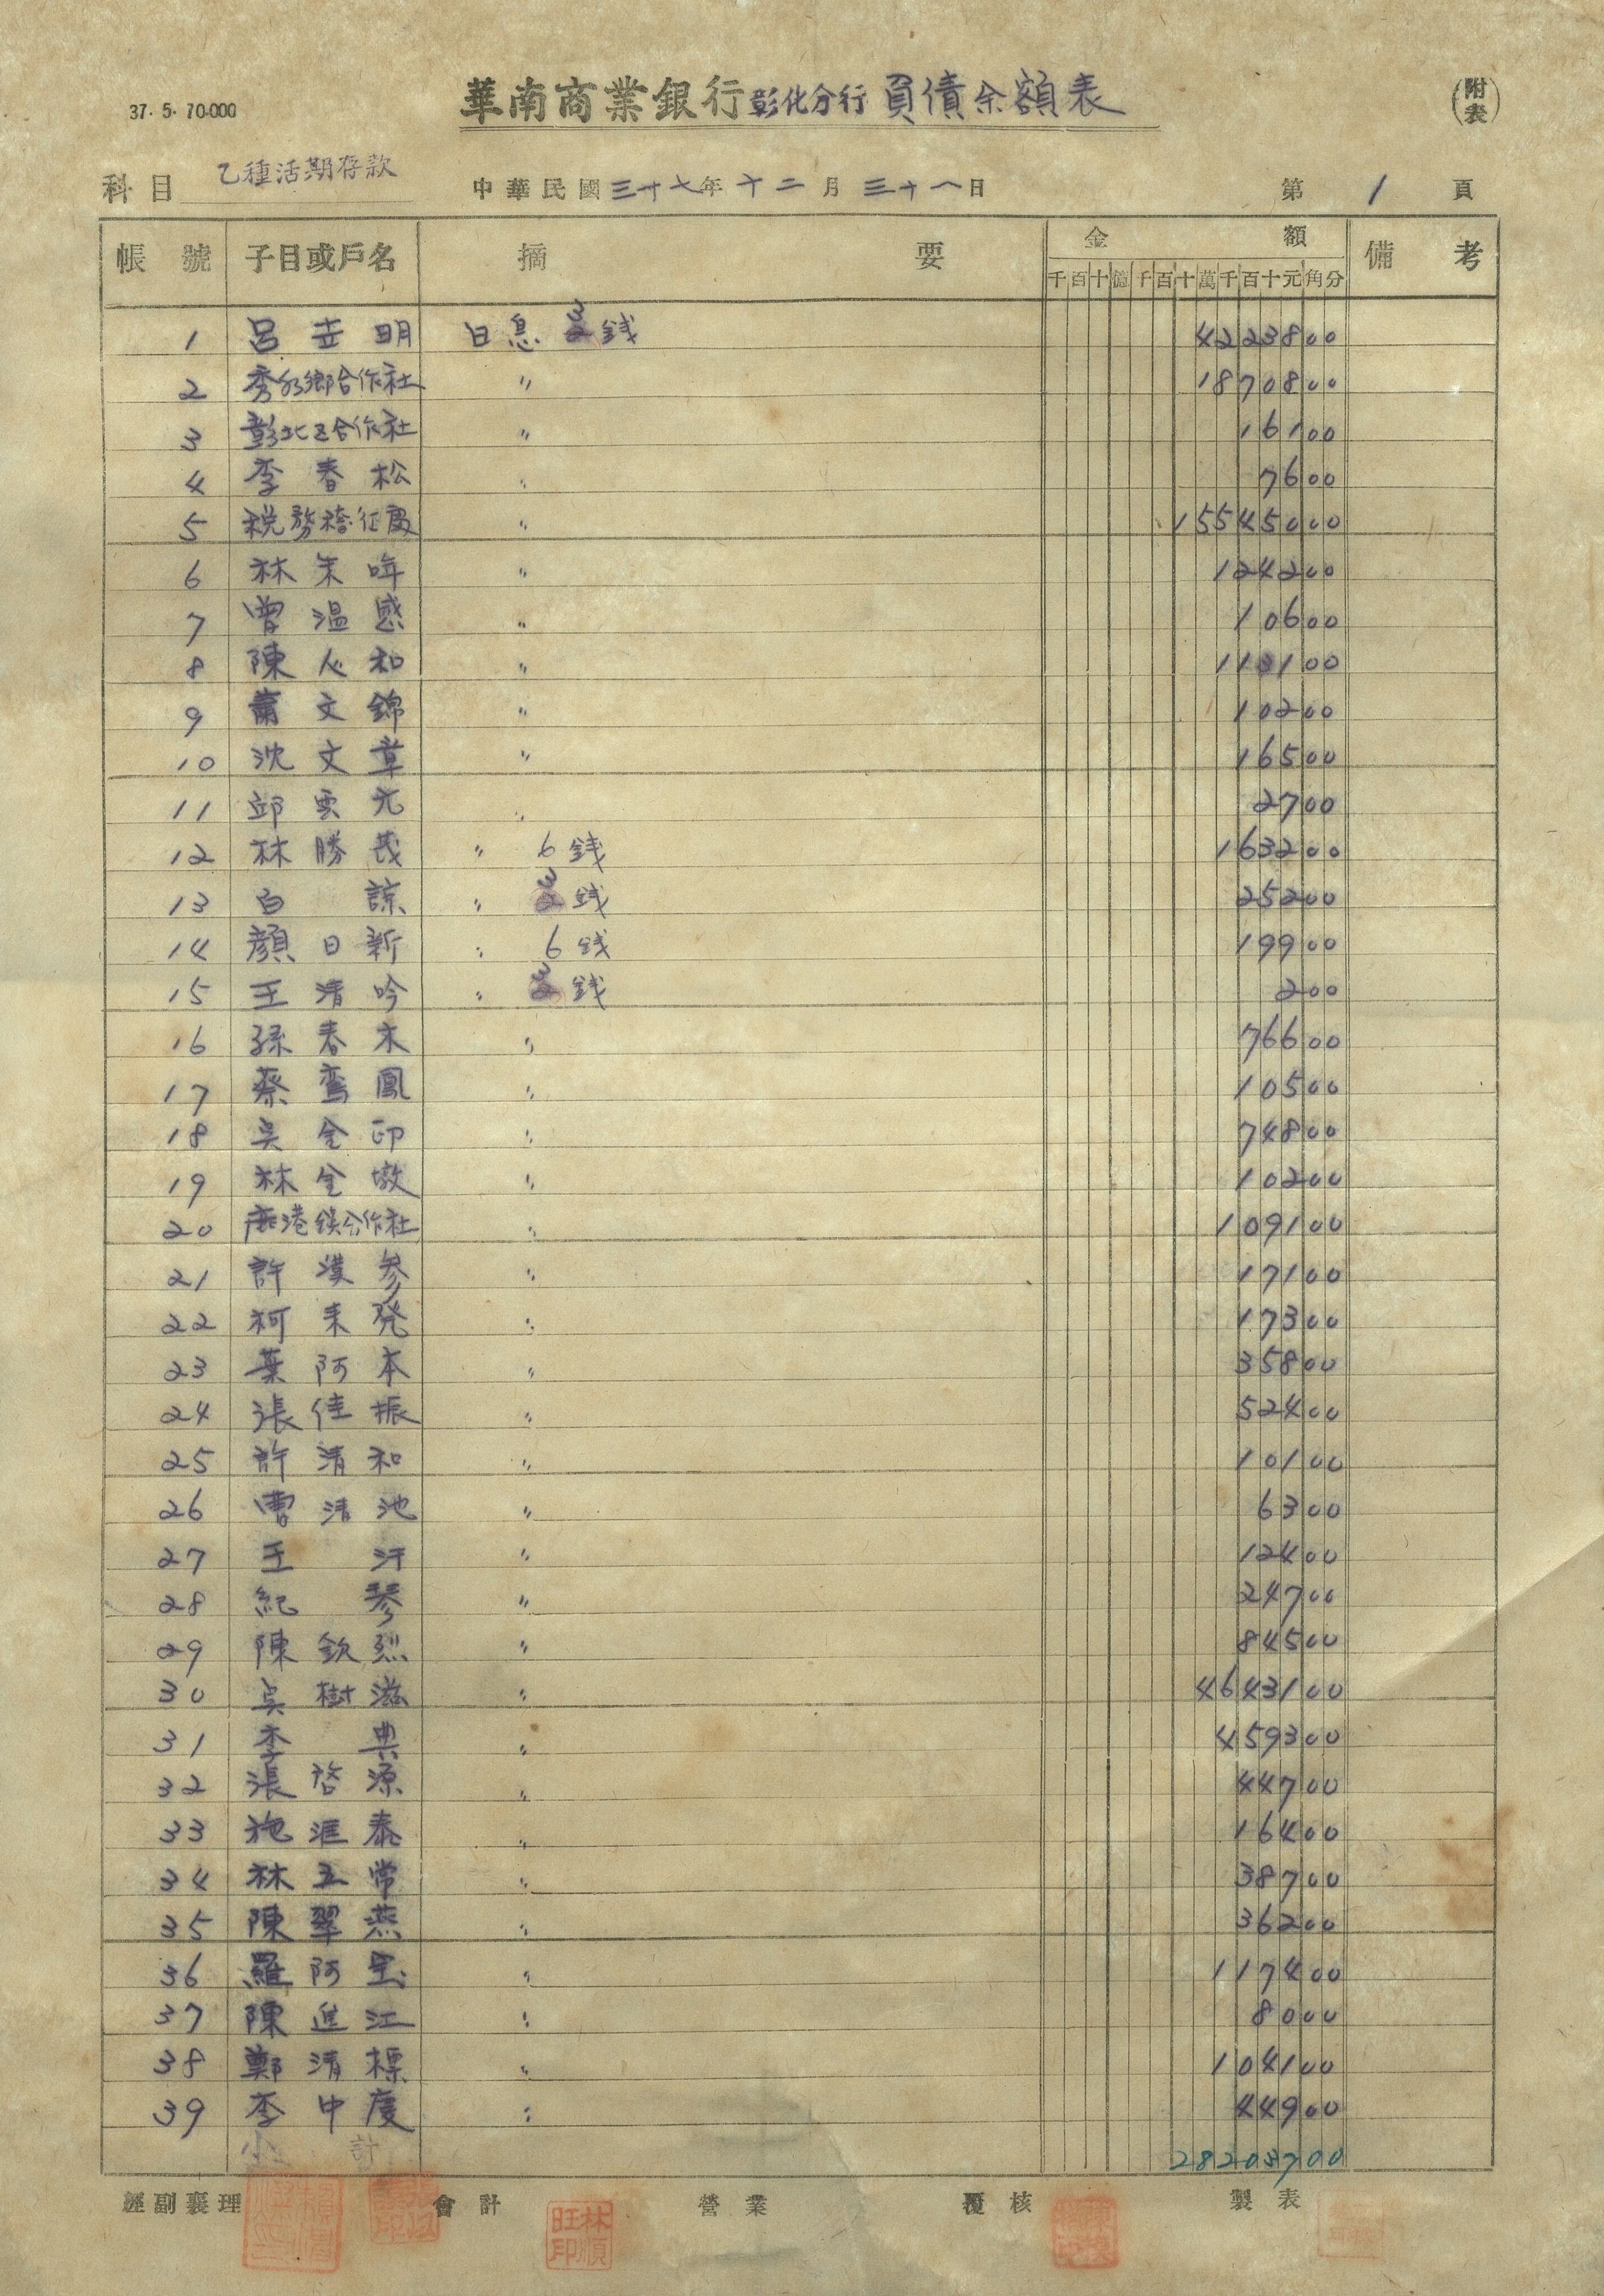 37. 5. 70.000
華南商業銀行彰化分行 負債余額表
(附表)
科目 乙種活期存款
中華民國三十七年十二月三十一日
第 1 頁
帳號 子目或戶名 摘要 金額 備考
千百十億千百十萬千百十元角分
1 呂世明 日息 3錢 4223800
2 秀水鄉合作社 〃 1870800
3 彰北区合作社 〃 16100
4 李春松 〃 7600
5 税務稽征處 〃 15545000
6 林朱 〃 124200
7 曾温 〃 10600
8 陳人和 〃 1100
9 蕭文錦 〃 10200
10 沈文章 〃 16500
11 邱雲元 〃 2700
12 林勝茂 〃 6錢 163200
13 白諒 〃 3錢 25200
14 顏日新 〃 6錢 19900
15 王清吟 〃 3錢 200
16 孫春木 〃 76600
17 蔡鸞鳳 〃 10500
18 吳金印 〃 74800
19 林金墩 〃 10200
20 鹿港鎮合作社 〃 109100
21 許漢参 〃 17100
22 柯来発 〃 17300
23 葉阿本 〃 35800
24 張佳振 〃 52400
25 許清和 〃 10100
26 曹清池 〃 6300
27 王汗 〃 12400
28 紀琴 〃 24700
29 陳欽烈 〃 84500
30 吳樹滋 〃 4643100
31 李典 〃 459300
32 張啓源 〃 44700
33 施涯泰 〃 16400
34 林五常 〃 38700
35 陳翠燕 〃 36200
36 羅阿 〃 117400
37 陳進江 〃 8000
38 鄭清標 〃 104100
39 李中慶 〃 44900
小計 28203700
經副襄理 會計 營業 覆核 製表
林順旺印